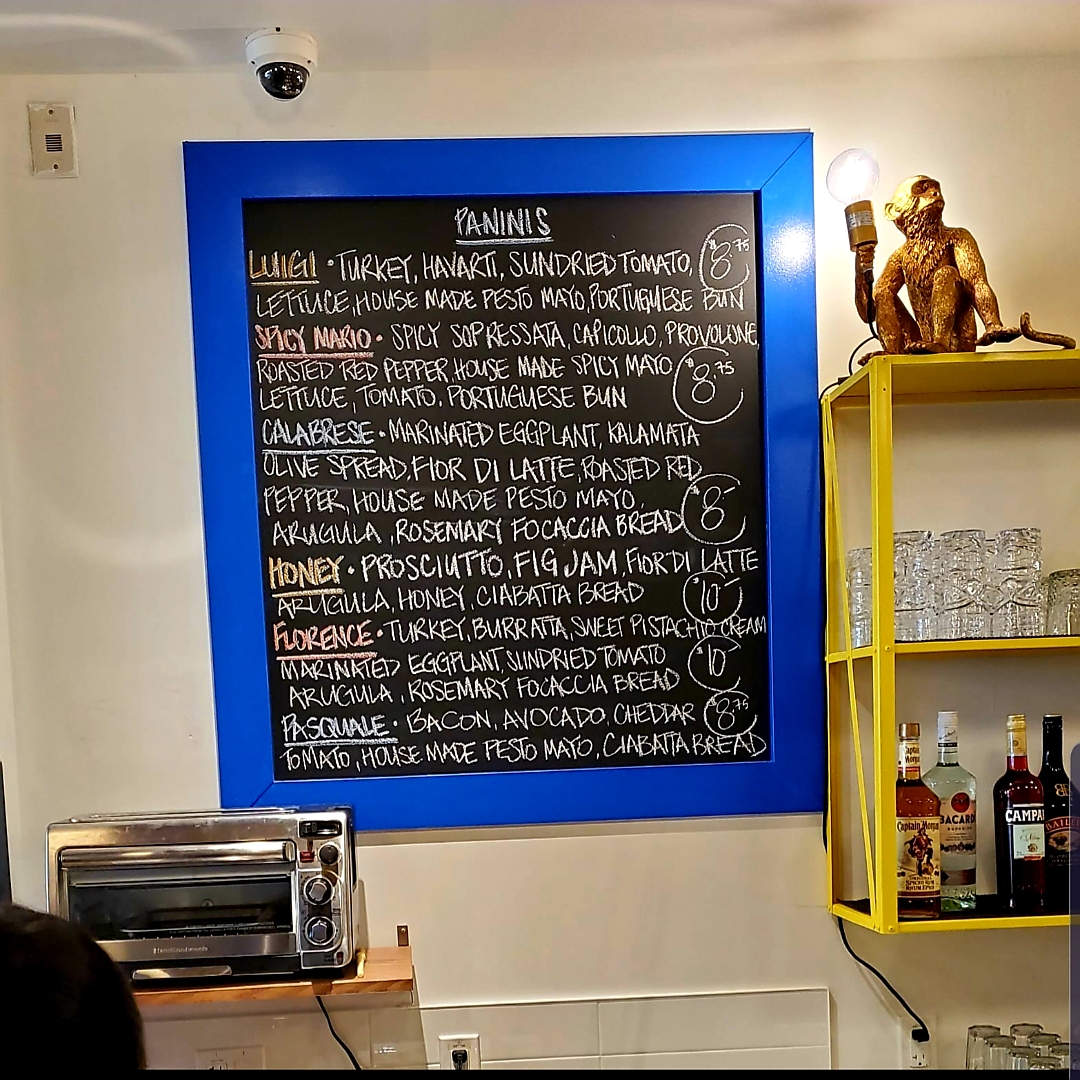 PANINIS
LUIGI • TURKEY, HAVARTI, SUNDRIED TOMATO, $8.75
LETTUCE, HOUSE MADE PESTO MAYO, PORTUGUESE BUN
SPICY MARIO • SPICY SOPRESSATA, CAPICOLLO, PROVOLONE,
ROASTED RED PEPPER, HOUSE MADE SPICY MAYO $8.75
LETTUCE, TOMATO. PORTUGUESE BUN
CALABRESE • MARINATED EGGPLANT, KALAMATA
OLIVE SPREAD, FIOR DI LATTE, ROASTED RED
PEPPER, HOUSE MADE PESTO MAYO, $8-
ARUGULA, ROSEMARY FOCACCIA BREAD
HONEY • PROSCIUTTO, FIG JAM, FIOR DI LATTE
ARUGULA, HONEY, CIABATTA BREAD $10-
FLORENCE • TURKEY, BURRATTA, SWEET PISTACHIO CREAM
MARINATED EGGPLANT, SUNDRIED TOMATO $10-
ARUGULA, ROSEMARY FOCACCIA BREAD
PASQUALE • BACON, AVOCADO, CHEDDAR $8.75
TOMATO, HOUSE MADE PESTO MAYO, CIABATTA BREAD
Captain Morgan
BACARD
CAMPA
BAILE
Captain Morgan
ORIGINAL
SPICED RUM